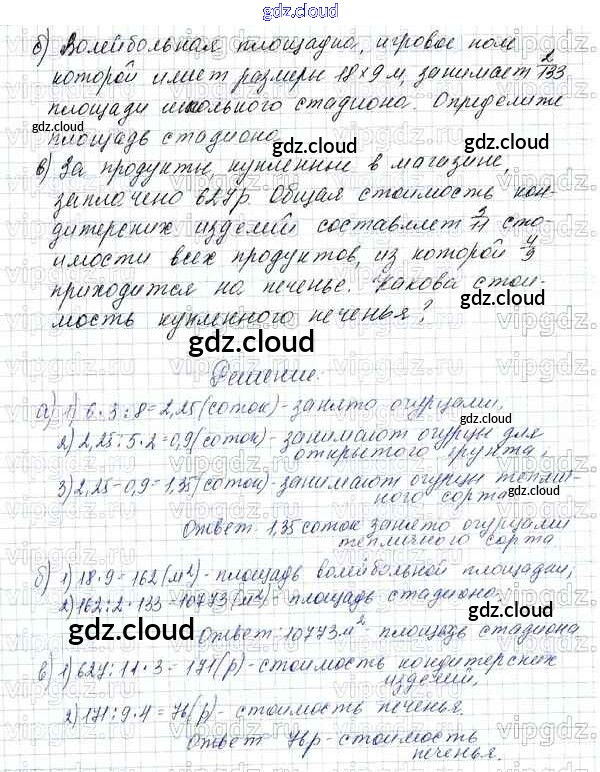 gdz.cloud
gdz.cloud
б) Волейбольная площадка, игровое поле
которой имеет размеры 18×9 м, занимает 2/133
площади школьного стадиона. Определите
gdz.cloud
площадь стадиона.
gdz.cloud
в) За продукты, купленные в магазине,
заплачено 627р. Общая стоимость кон-
gdz.cloud
дитерских изделий составляет 3/11 сто-
имости всех продуктов, из которой 4/9
приходится на печенье. Какова стои-
gdz.cloud
мость купленного печенья?
gdz.cloud
Решение.
gdz.cloud
а) 1) 6·3:8=2,25(соток)-занято огурцами,
gdz.cloud
2) 2,25:5·2=0,9(соток)-занимают огурцы для
открытого грунта,
3) 2,25-0,9=1,35(соток)-занимают огурцы теплич-
ного сорта
gdz.cloud
Ответ 1,35 соток занято огурцами
тепличного сорта
б) 1) 18·9=162(м²)-площадь волейбольной площадки,
2) 162:2·133=10773(м²)-площадь стадиона.
gdz.cloud
gdz.cloud
Ответ: 10773м²-площадь стадиона
в) 1) 627:11·3=171(р)-стоимость кондитерских
изделий,
2) 171:9·4=76(р)-стоимость печенья.
gdz.cloud
Ответ 76р-стоимость
печенья.